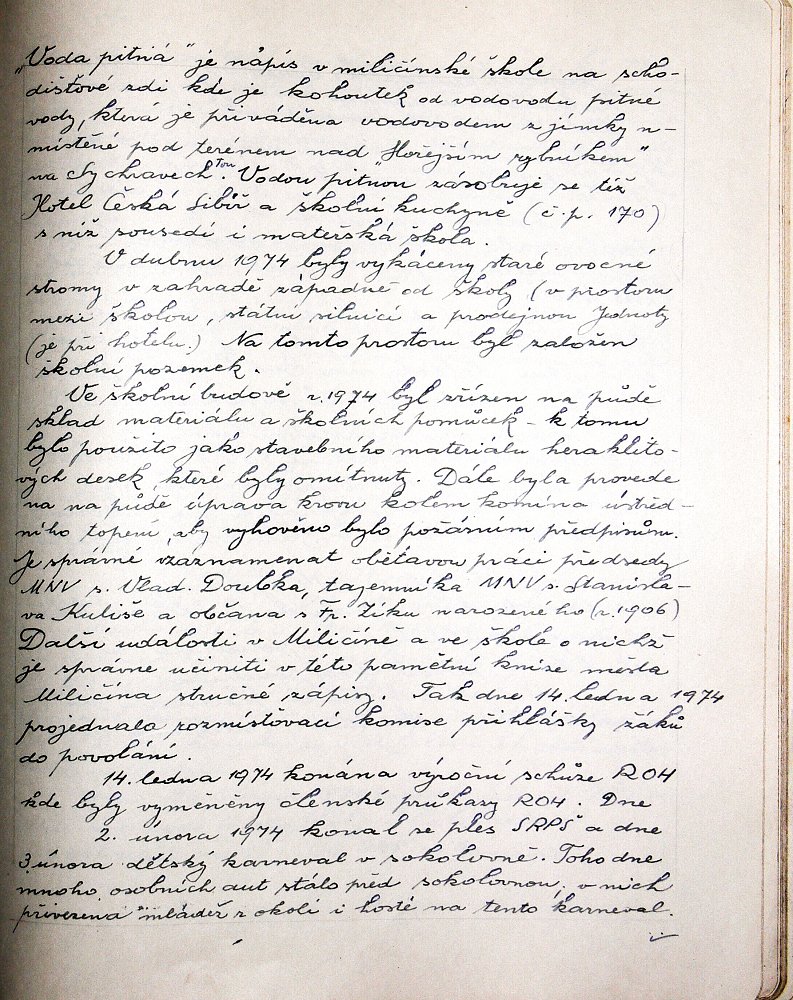 „Voda pitná" je nápis v miličínské škole na scho-
dišťové zdi kde je kohoutek od vodovodu pitné
vody, která je přiváděna vodovodem z jímky u-
místěné pod terénem nad „Hořejším rybníkem"
na Sychravech. Touto Vodou pitnou zásobuje se též
Hotel Česká Sibiř a školní kuchyně (č.p. 170)
s níž sousedí i mateřská škola.
V dubnu 1974 byly vykáceny staré ovocné
stromy v zahradě západně od školy (v prostoru
mezi školou, státní silnicí a prodejnou Jednoty
(je při hotelu.) Na tomto prostoru byl založen
školní pozemek.
Ve školní budově r. 1974 byl zřízen na půdě
sklad materiálu a školních pomůcek - k tomu
bylo použito jako stavebního materiálu heraklito-
vých desek, které byly omítnuty. Dále byla provede
na na půdě úprava krovu kolem komína ústřed-
ního topení, aby vyhověno bylo požárním předpisům.
Je správné zaznamenat obětavou práci předsedy
MNV s. Vlad. Doubka, tajemníka MNV s. Stanisla-
va Kuliše a občana s Fr. Ziku narozeného (r. 1906)
Další události v Miličíně a ve škole o nichž
je správne učiniti v této pamětní knize mesta
Miličína stručné zápisy. Tak dne 14. ledna 1974
projednala rozmisťovací komise přihlášky žáků
do povolání.
14. ledna 1974 konána výroční schůze ROH
kde byly vyměněny členské průkazy ROH. Dne
2. února 1974 konal se ples SRPŠ a dne
3. února dětský karneval v sokolovně. Toho dne
mnoho osobních aut stálo před sokolovnou, v nich
přivezena mládež z okolí i hosté na tento karneval.